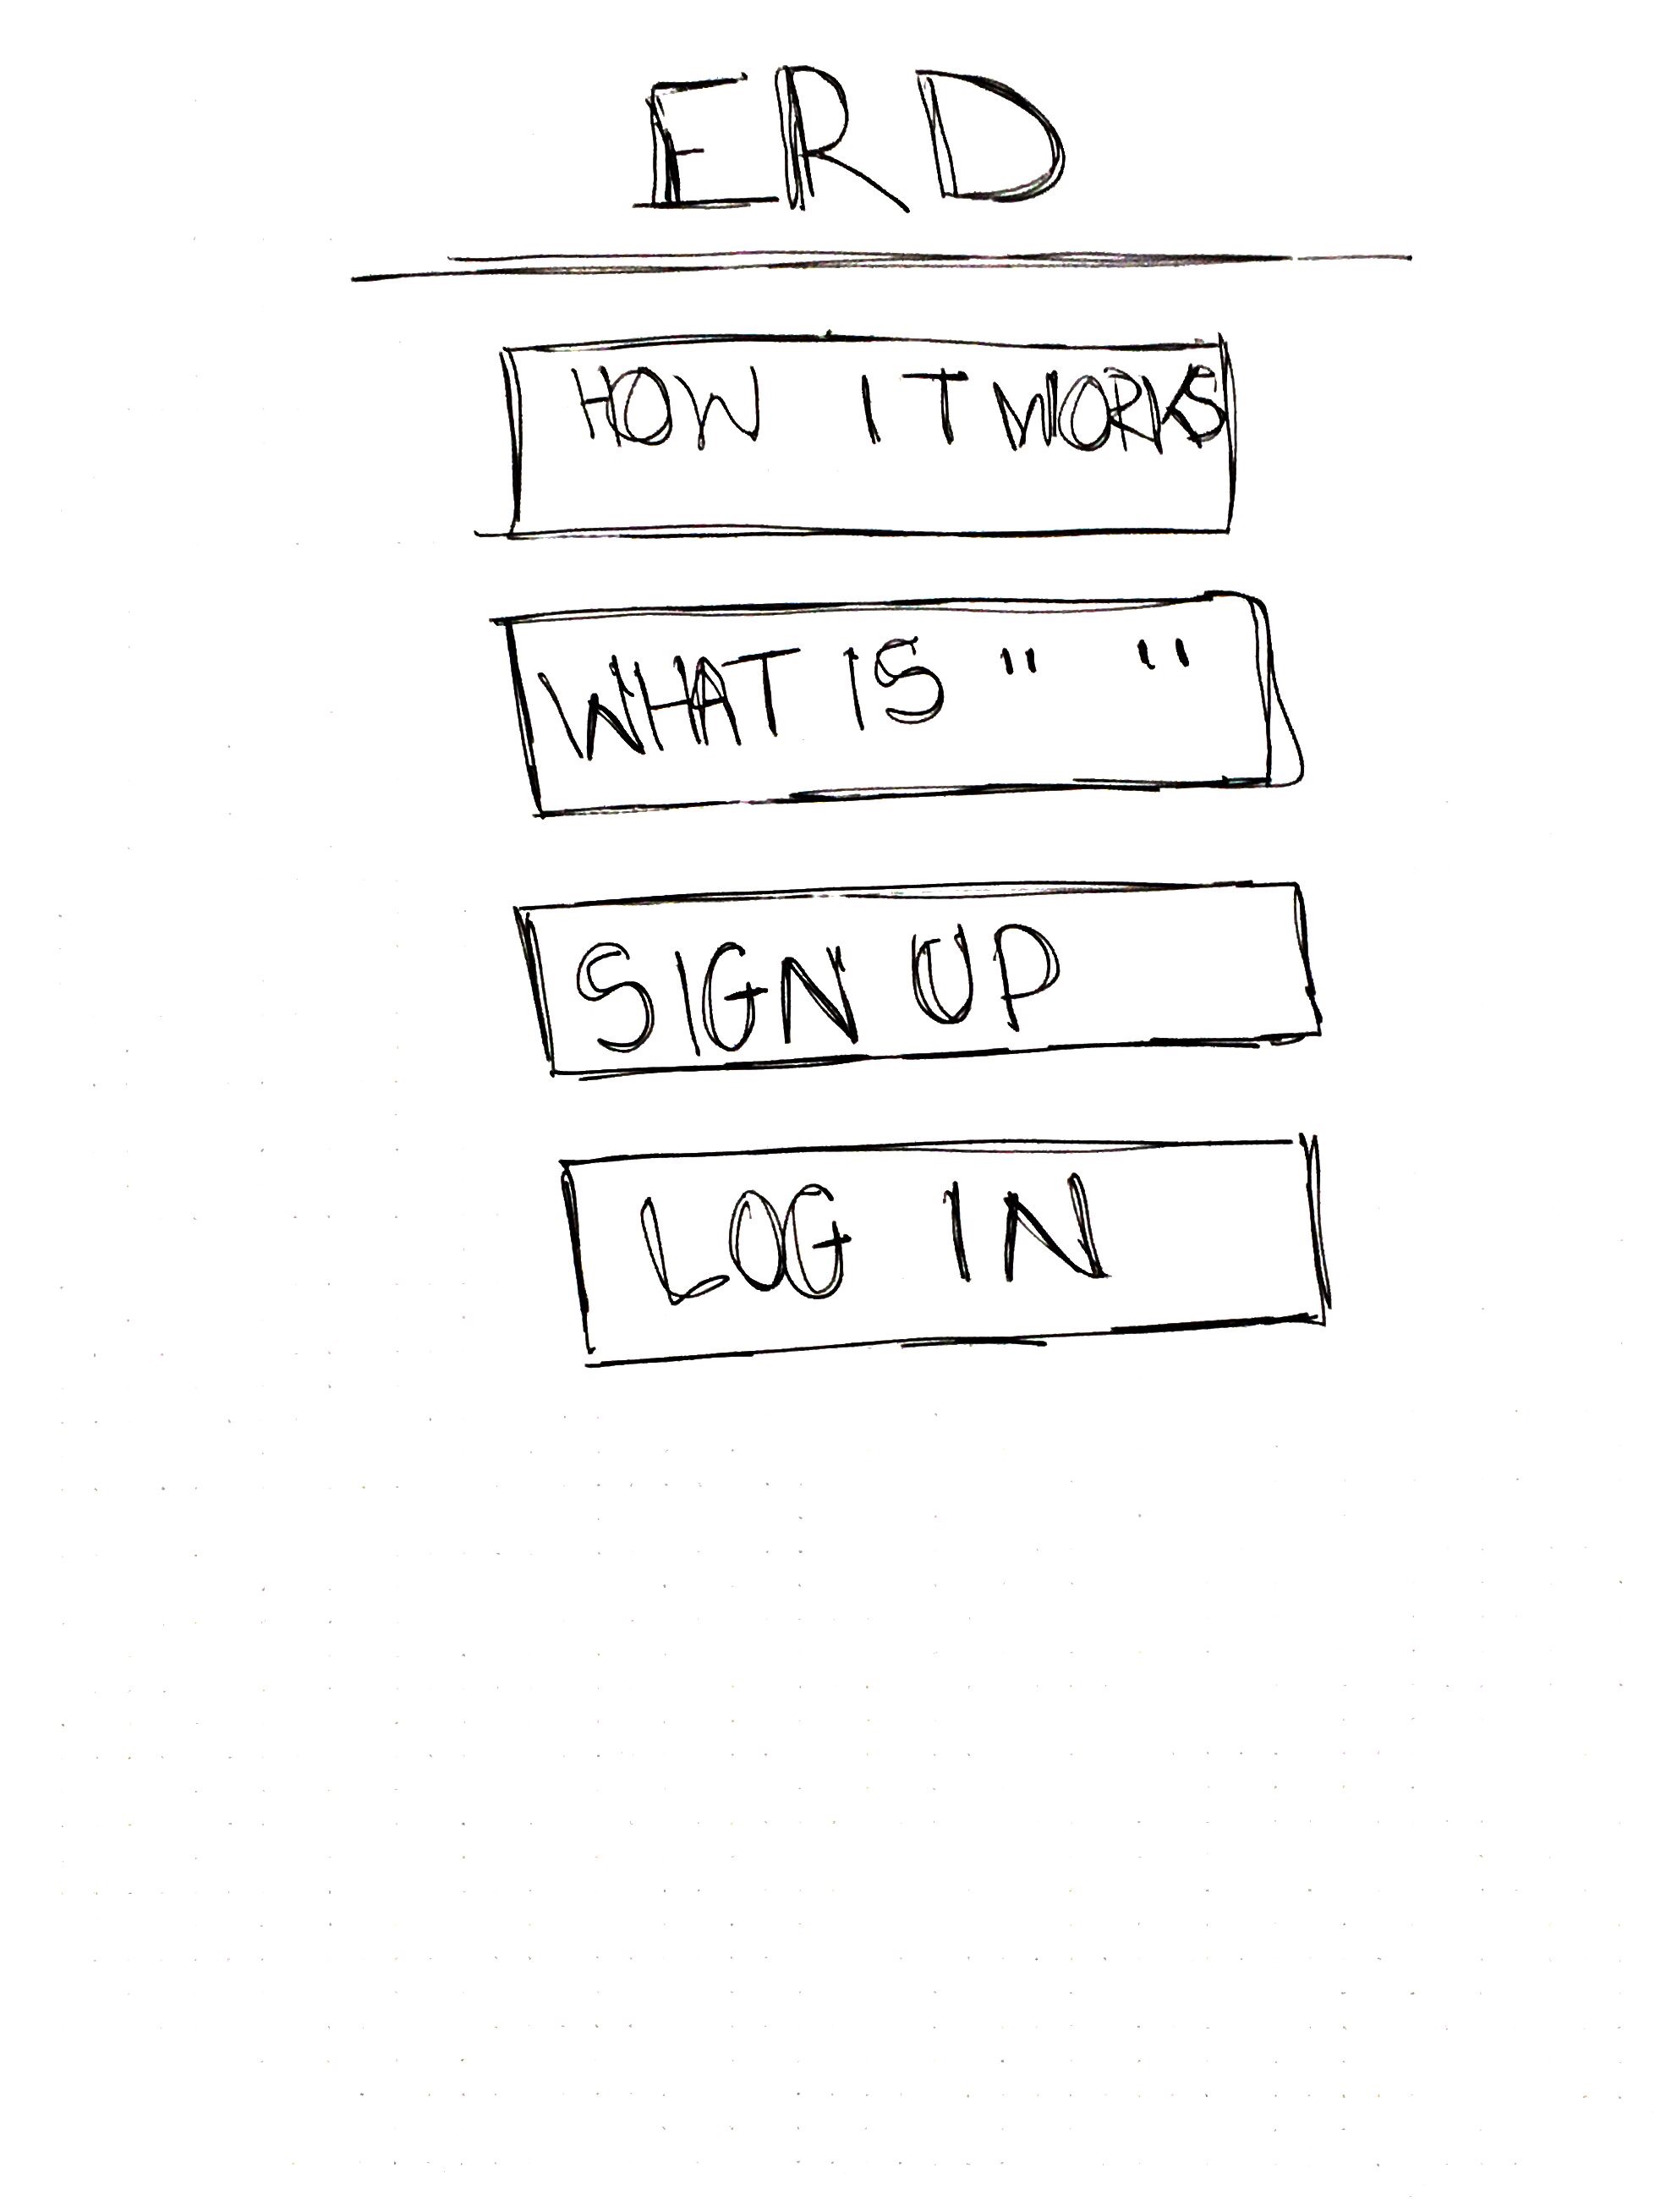 ERD
HOW IT WORKS
WHAT IS " "
SIGN UP
LOG IN